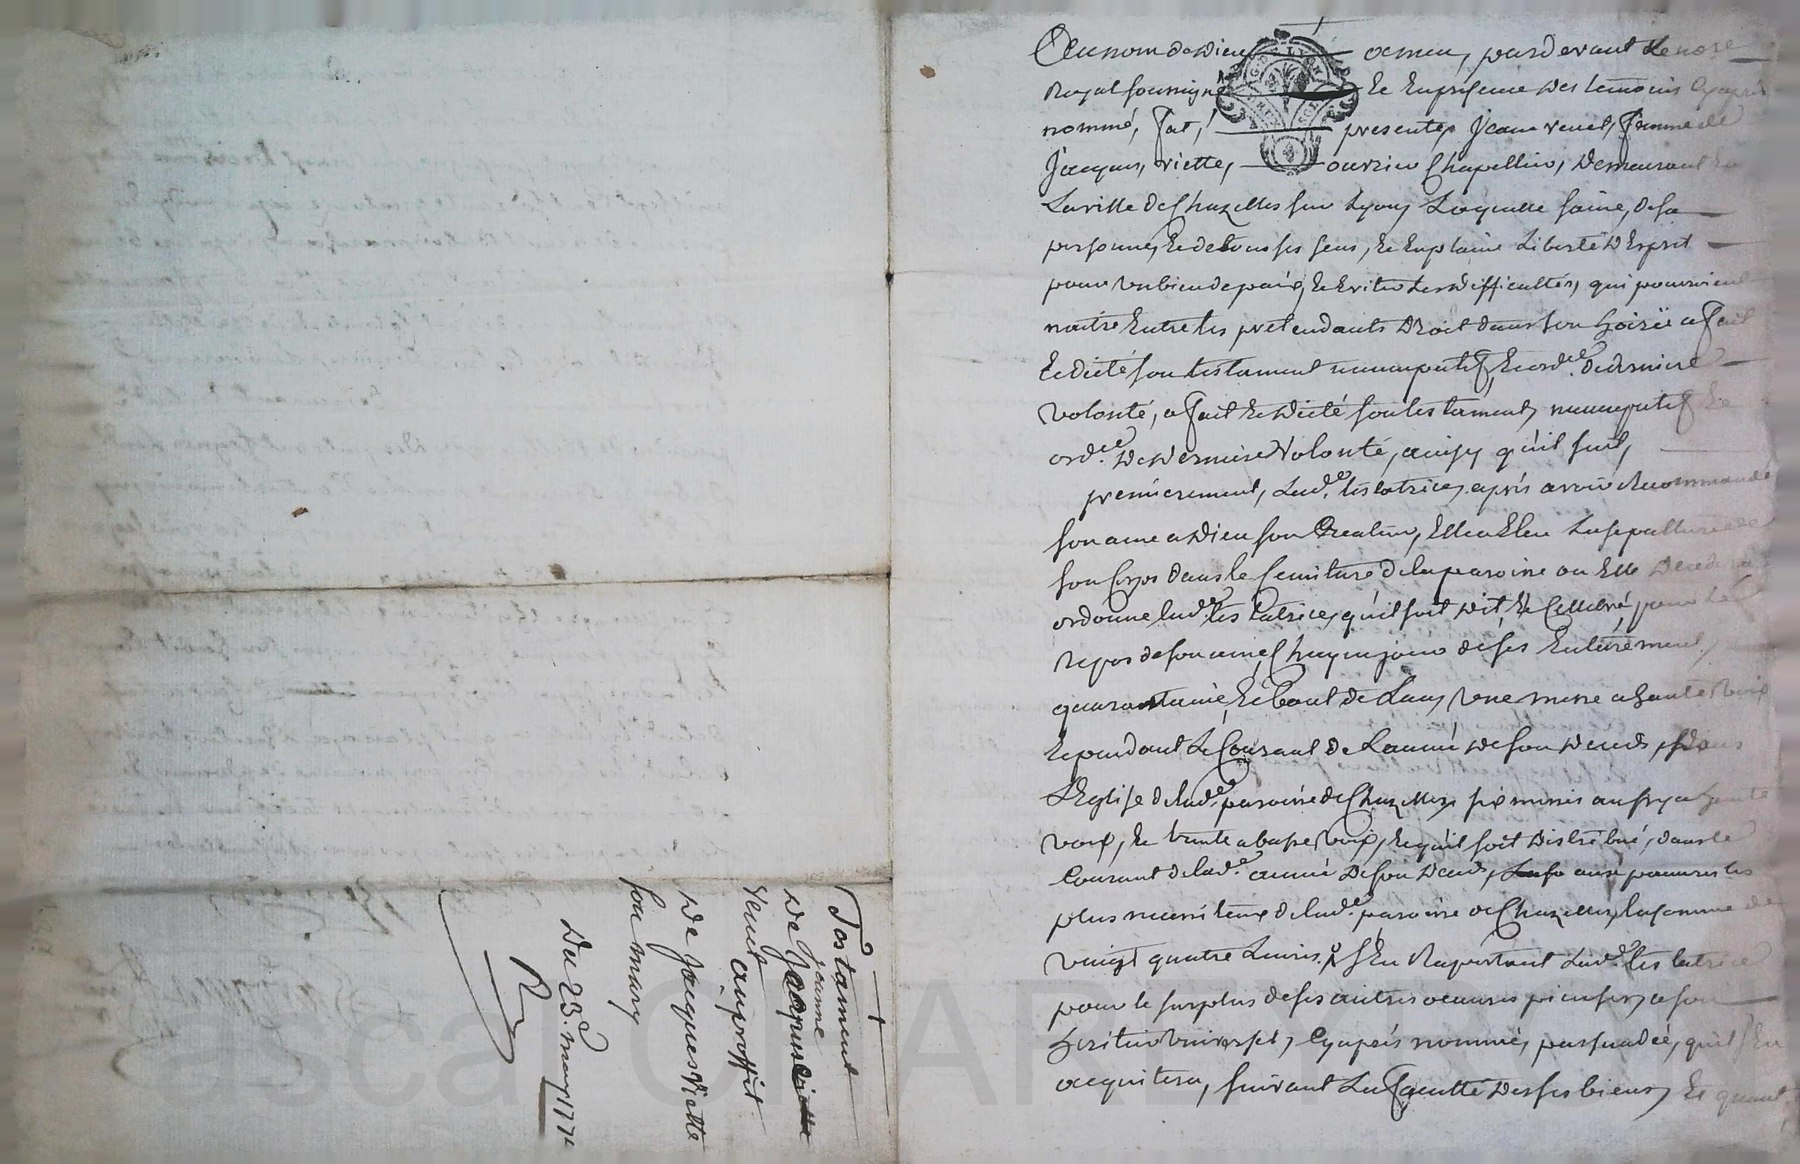 Au nom de Dieu amen, pardevant Le nore
Royal soussigné Et En presence des temoins Cyaprès
nommé, fut, presente, Jeanne venet, femme de
Jacques, viette, ouvrier Chapellier, demeurant En
La ville de Chazelles sur Lyon, Laquelle saine, de sa
personne, Et de tous ses sens, Et En plaine Liberté d'Esprit
pour un bien de paix, Et Eviter Les difficultés, qui pourroient
naitre Entre les pretendants Droit dans son hoirie a fait
Et dicté son testament nuncupatif, Et ord.ce de derniere
volonté, a fait Et dicté son testament, nuncupatif Et
ord.ce De Derniere Volonté, ainsy qu'il suit,
premierement, Lad.e testatrice, après avoir Recommandé
son ame a Dieu son Createur, Elle a Eleu La sepulture de
son Corps dans le Cemitiere de la paroisse ou Elle Decedera
ordonne lad.e testatrice, qu'il soit dit, Et Cellebré, pour Le
Repos de son ame, Chaque jour de ses Enterrement,
quarantaine, Et bout de L'an, une messe a haute voix
Et pendant Le Courant de L'année de son Deceds, dans
L'Eglise de lad.e paroisse de Chazelles, six messes aussy a haute
voix, Et trente a basse voix, Et qu'il soit distribué, dans le
Courant de lad.e année de son Deceds, aux pauvres les
plus necessiteux de lad.e paroisse de Chazelles, la somme de
vingt quatre Livres, s'En Raportant Lad.e testatrice
pour le surplus de ses autres oeuvres pieuses, a son
heritier universel, Cyaprès nommé, persuadée, qu'il s'En
acquitera, suivant La faculté De ses biens, Et quant
Testament
De Jeanne
Venet au proffit
De Jacques Viette
son mary
Du 23.e may 177